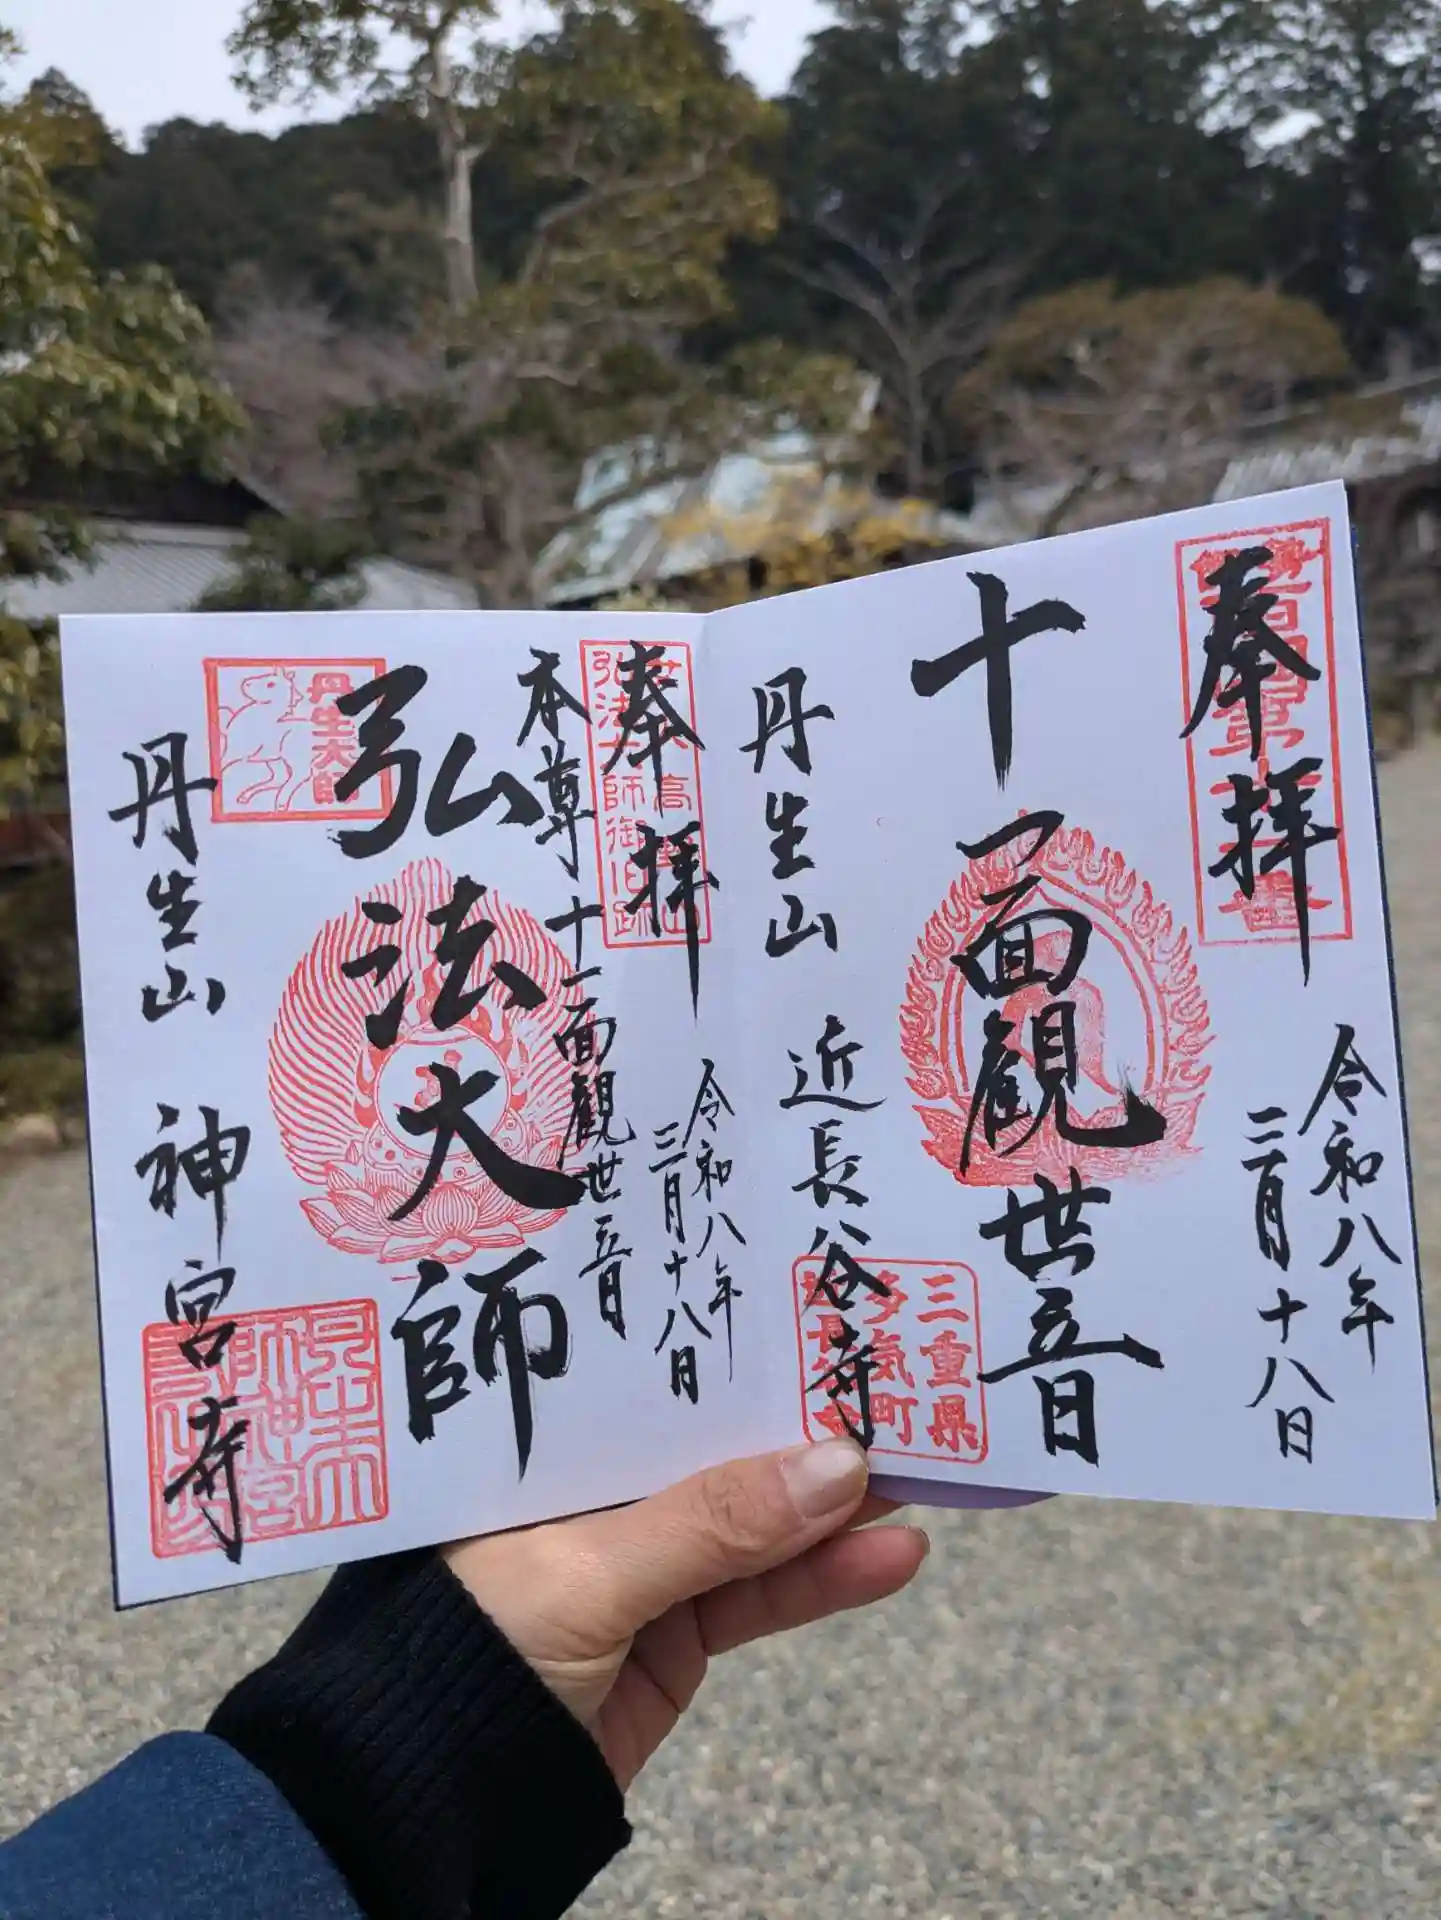 奉拝
令和八年
二月十八日
十一面観世音
丹生山
近長谷寺
三重県
多気町
近長谷寺
奉拝
弘法大師御旧跡
令和八年
二月十八日
本尊十一面観世音
弘法大師
丹生大師
丹生山
神宮寺